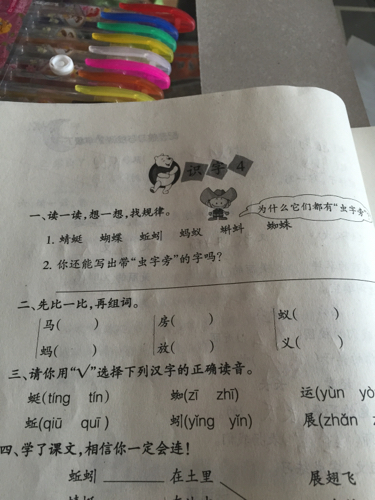 识字4
为什么它们都有“虫字旁”
一、读一读,想一想,找规律。
1. 蜻蜓 蝴蝶 蚯蚓 蚂蚁 蝌蚪 蜘蛛
2. 你还能写出带“虫字旁”的字吗?
二、先比一比,再组词。
马( ) 房( ) 蚁( )
蚂( ) 放( ) 义( )
三、请你用“√”选择下列汉字的正确读音。
蜓(tíng tín) 蜘(zī zhī) 运(yùn
蚯(qiū quī) 蚓(yǐng yǐn) 展(zhǎn
四、学了课文,相信你一定会连!
蚯蚓 在土里 展翅飞